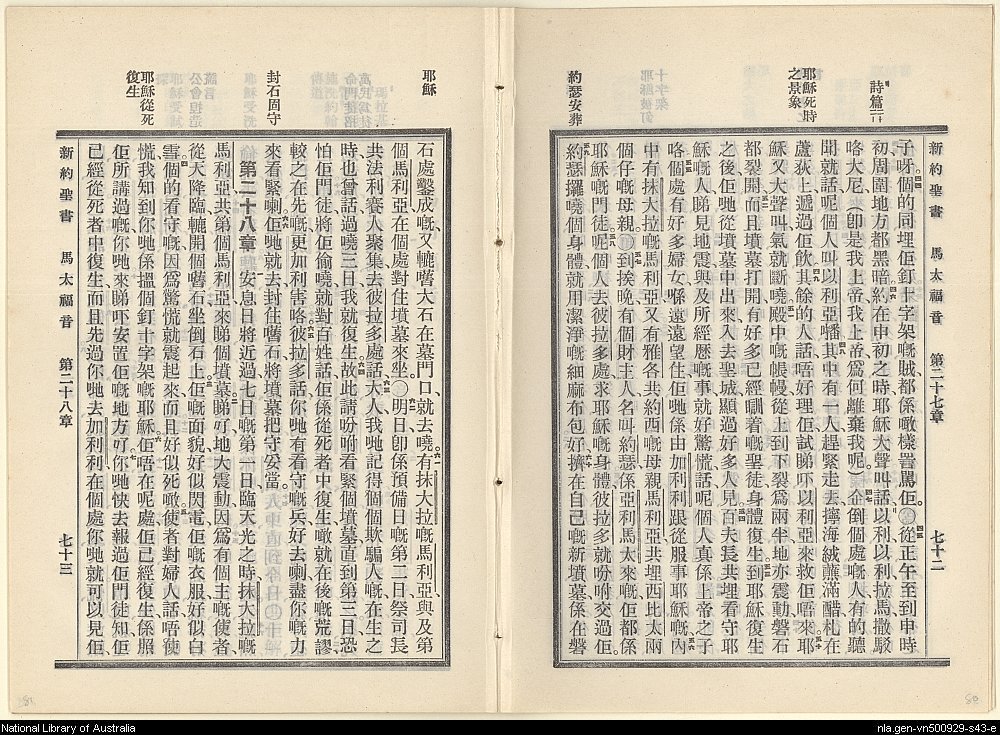 新約聖書 馬太福音 第二十七章 七十二
詩篇二十二
耶穌死時之景象
約瑟安葬
子呀個的同埋佢釘十字架嘅賊都係噉樣詈罵佢。從正午至到申時
初周圍地方都黑暗約在申初之時耶穌大聲叫話以利以利拉馬撒駁
咯大尼、來卽是我上帝我上帝爲何離棄我呢企倒個處嘅人有的聽
聞就話呢個人叫以利亞噃其中有一人趕緊走去擰海絨蘸滿醋札在
蘆荻上遞過佢飲其餘的人話唔好理佢試睇吓以利亞來救佢唔來耶
穌又大聲叫氣就斷嘵殿中嘅帳幔從上到下裂爲兩半地亦震動磐石
都裂開而且墳墓打開有好多已經瞓着嘅聖徒身體復生到耶穌復生
之後佢哋從墳墓中出來入去聖城顯過好多人見百夫長共埋看守耶
穌嘅人睇見地震與及所經歷嘅事就好驚慌話呢個人真係上帝之子
咯個處有好多婦女喺遠遠望住佢哋係由加利利跟從服事耶穌嘅內
中有抹大拉嘅馬利亞又有雅各共約西嘅母親馬利亞共埋西比太兩
個仔嘅母親到挨晚有個財主人名叫約瑟係亞利馬太來嘅佢都係
耶穌嘅門徒呢個人去彼拉多處求耶穌嘅身體彼拉多就吩咐交過佢。
約瑟攞嘵個身體就用潔淨嘅細麻布包好擠在自己嘅新墳墓係在磐
耶穌
封石固守
耶穌從死復生
石處鑿成嘅又轆嚿大石在墓門口就去嘵有抹大拉嘅馬利亞與及第
個馬利亞在個處對住墳墓來坐明日卽係預備日嘅第二日祭司長
共法利賽人聚集去彼拉多處話大人我哋記得個個欺騙人嘅在生之
時也曾話過嘵三日我就復生故此請吩咐看緊個墳墓直到第三日恐
怕佢門徒將佢偷嘵就對百姓話佢係從死者中復生噉就在後嘅荒謬
較之在先嘅更加利害咯彼拉多話你哋有看守嘅兵好去喇盡你嘅力
來看緊喇佢哋就去封住嚿石將墳墓把守妥當
第二十八章 安息日將近過七日嘅第一日臨天光之時抹大拉嘅
馬利亞共第個馬利亞來睇個墳墓睇好地大震動因爲有個主嘅使者
從天降臨轆開個嚿石坐倒石上佢嘅面貌好似閃電佢嘅衣服好似白
雪個的看守嘅因爲驚慌就震起來而且好似死噉使者對婦人話唔使
慌我知到你哋係搵個釘十字架嘅耶穌佢唔在呢處佢已經復生係照
佢所講過嘅你哋來睇吓安置佢嘅地方好你哋快去報過佢門徒知佢
已經從死者中復生而且先過你哋去加利利在個處你哋就可以見佢
新約聖書 馬太福音 第二十八章 七十三
National Library of Australia
nla.gen-vn500929-s43-e